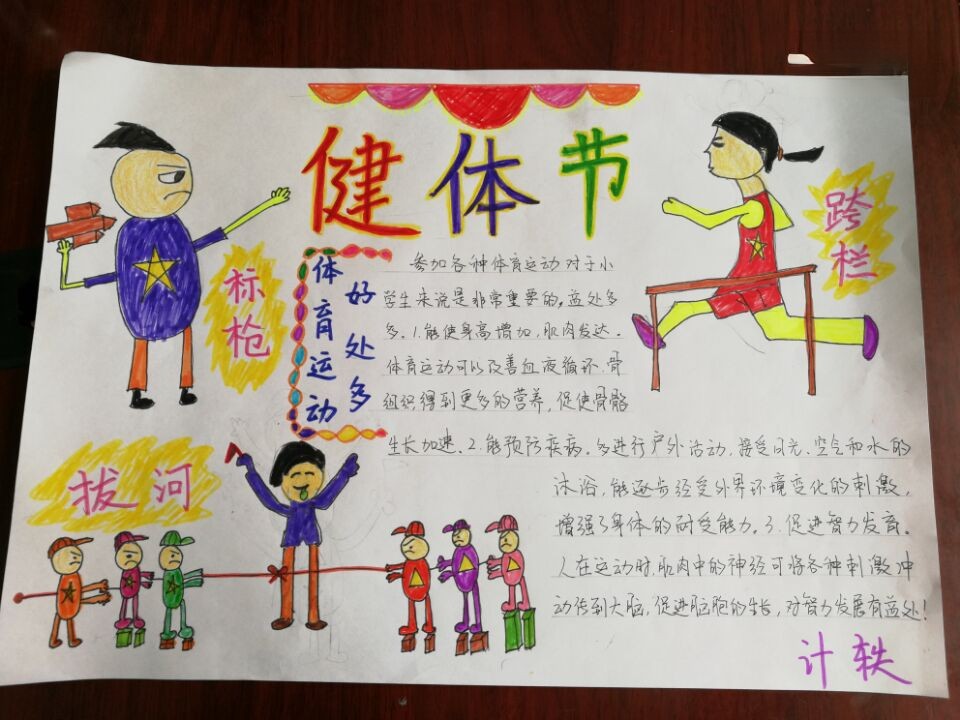 健体节
标枪
跨栏
体育运动
好处多
参加各种体育运动对于小
学生来说是非常重要的。益处多
多。1.能使身高增加，肌肉发达。
体育运动可以改善血液循环，骨
组织得到更多的营养，促使骨骼
生长加速。2.能预防疾病。多进行户外活动，接受日光、空气和水的
沐浴，能逐步经受外界环境变化的刺激，
增强了身体的耐受能力。3.促进智力发育。
人在运动时，肌肉中的神经可将各种刺激冲
动传到大脑，促进脑胞的生长，对智力发展有益处！
拔河
计轶